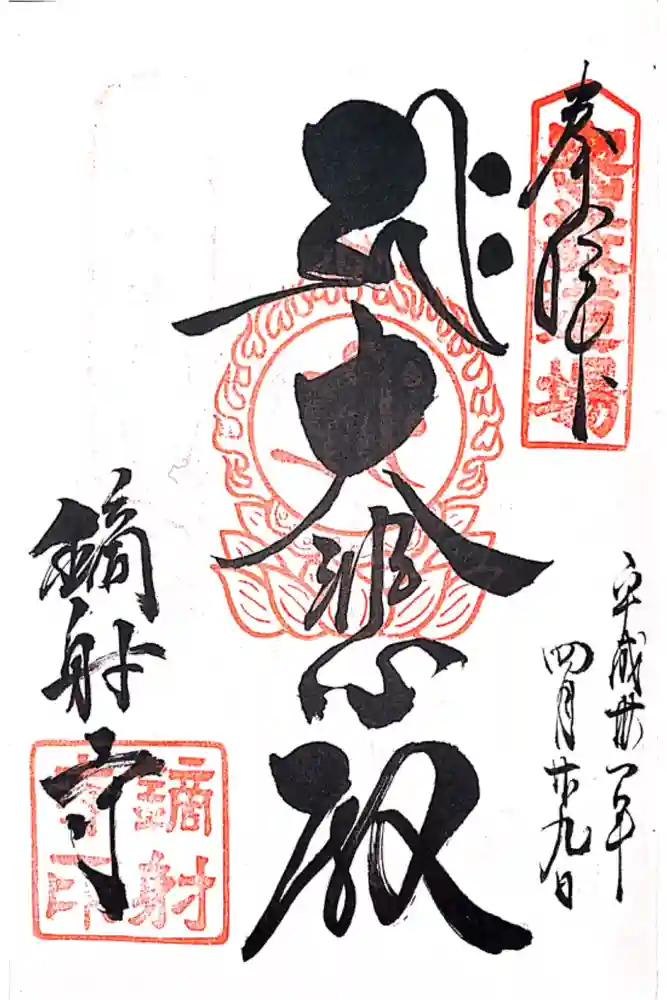 奉拝
道場
𑖮𑖿𑖨𑖱𑖾
大悲殿
平成卅一年
四月廿九日
鏑射寺
鏑射
寺印